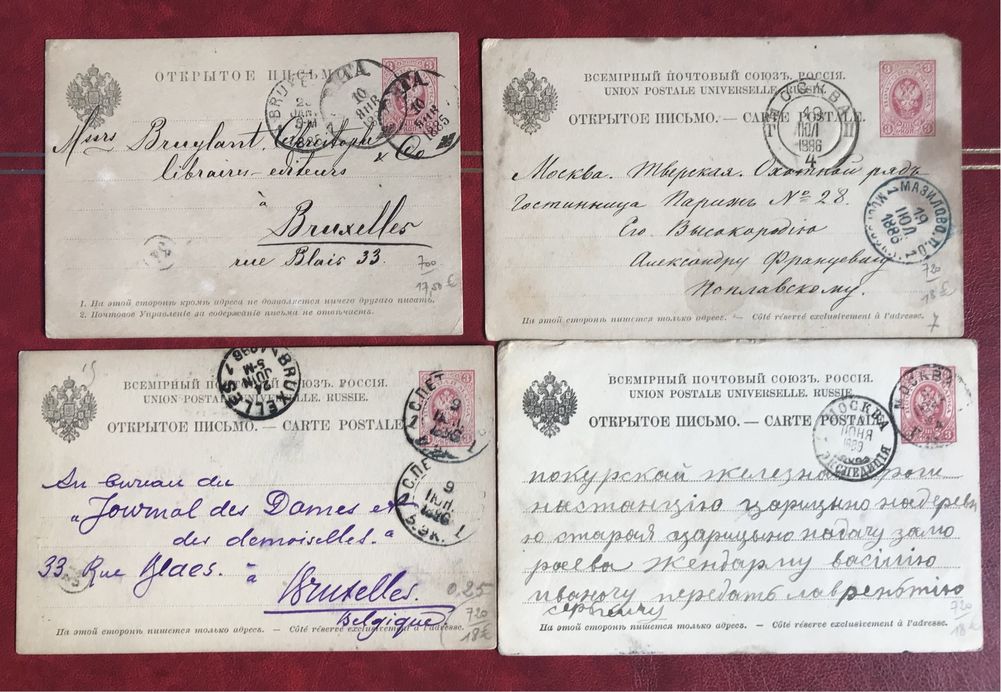 ОТКРЫТОЕ ПИСЬМО
3
Bruylant, Christophe & Co
libraires-editeurs
à
Bruxelles
rue Blais 33.
700
17,50 €
1. На этой сторонѣ кромѣ адреса не дозволяется ничего другаго писать.
2. Почтовое Управленіе за содержаніе письма не отвѣчаетъ.
10
ЯНВ
1885
ВСЕМІРНЫЙ ПОЧТОВЫЙ СОЮЗЪ. РОССІЯ.
UNION POSTALE UNIVERSELLE. RUSSIE.
ОТКРЫТОЕ ПИСЬМО. — CARTE POSTALE.
3 3
МОСКВА
19
ІЮЛ
1886
4
Москва. Тверская. Охотной рядъ
Гостинница Парижъ № 28.
Его Высокородію
Александру Францовичу
Поплавскому.
МАЗИЛОВО
19
ІЮЛ
1886
720
18 €
7
На этой сторонѣ пишется только адресъ. — Côté réservé exclusivement à l'adresse.
ВСЕМІРНЫЙ ПОЧТОВЫЙ СОЮЗЪ. РОССІЯ.
UNION POSTALE UNIVERSELLE. RUSSIE.
ОТКРЫТОЕ ПИСЬМО. — CARTE POSTALE.
3
BRUXELLES
Au bureau du
„Journal des Dames et
des demoiselles. à
33 Rue Blaes. à
Bruxelles.
Belgique
0.25
720
18 €
На этой сторонѣ пишется только адресъ. — Côté réservé exclusivement à l'adresse.
ВСЕМІРНЫЙ ПОЧТОВЫЙ СОЮЗЪ. РОССІЯ.
UNION POSTALE UNIVERSELLE. RUSSIE.
ОТКРЫТОЕ ПИСЬМО. — CARTE POSTALE
3
МОСКВА
МОСКВА
ІЮНЯ
1889
ЭКСПЕДИЦІЯ
покурской железной дороги
настанцію царицыно надерев
ю старая царицыно надачу замо
раева жендарму василію
иваночу передать лаврентію
сергѣичу
720
18 €
На этой сторонѣ пишется только адресъ. — Côté réservé exclusivement à l'adresse.